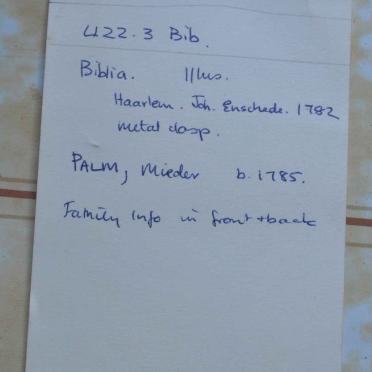 422.3 Bib.
Biblia. Illus.
Haarlem. Joh. Enschede. 1782
metal clasp.
PALM, Mieder b. 1785.
Family Info in front + back